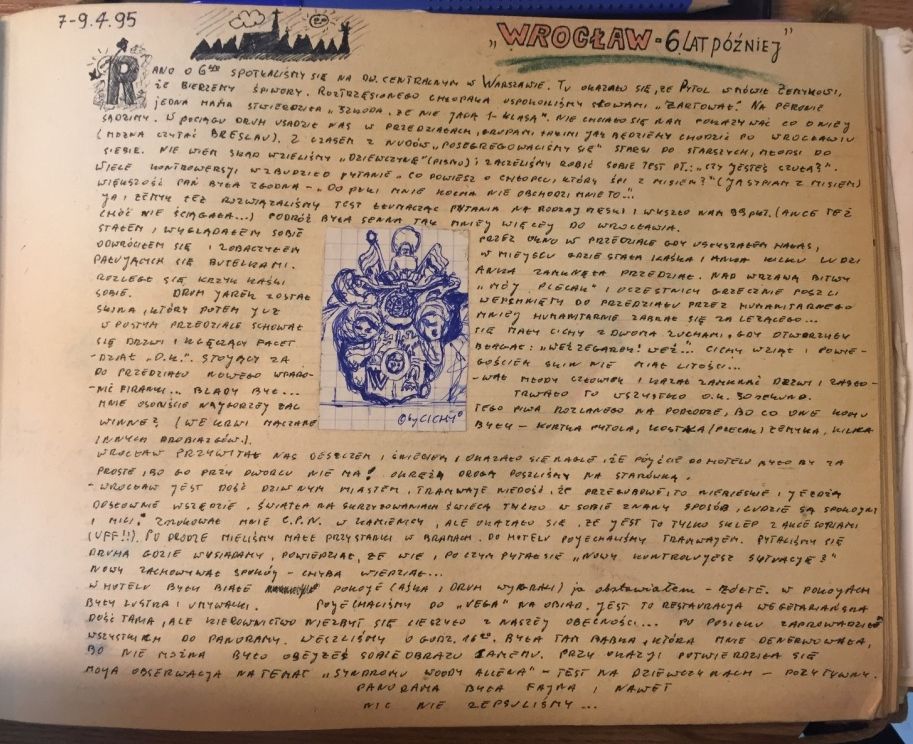 7-9.4.95
"WROCŁAW - 6 LAT PÓŹNIEJ"
RANO O 6 SPOTKALIŚMY SIĘ NA DW. CENTRALNYM W WARSZAWIE. TU OKAZAŁO SIĘ, ŻE PYTOL WMÓWIŁ ŻEMYKOWI,
ŻE BIERZEMY ŚPIWORY. ROZTRZĘSIONEGO CHŁOPAKA USPOKOILIŚMY SŁOWAMI "ŻARTOWAŁ". NA PERONIE
JEDNA MAMA STWIERDZIŁA "SZKODA, ŻE NIE JADĄ 1-KLASĄ". NIE CHCIAŁO SIĘ NAM POKAZYWAĆ CO O NIEJ
SĄDZIMY. W POCIĄGU DRUH USADZIŁ NAS W PRZEDZIAŁACH, GRUPAMI, TAKIMI JAK BĘDZIEMY CHODZIĆ PO WROCŁAWIU
(MOŻNA CZYTAĆ BRESLAU). Z CZASEM Z NUDÓW "POSEGREGOWALIŚMY SIĘ" STARSI DO STARSZYCH, MŁODSI DO
SIEBIE. NIE WIEM SKĄD WZIĘLIŚMY "DZIEWCZYNĘ" (PISMO) I ZACZĘLIŚMY ROBIĆ SOBIE TEST PT.: "CZY JESTEŚ CZUŁA?".
WIELE KONTROWERSJI WZBUDZIŁO PYTANIE "CO POWIESZ O CHŁOPCU, KTÓRY ŚPI Z MISIEM?" (JA SYPIAM Z MISIEM)
WIĘKSZOŚĆ PAŃ BYŁA ZGODNA - "DO PUKI MNIE KOCHA NIE OBCHODZI MNIE TO..."
JA I ŻEMYK TEŻ ROZWIĄZALIŚMY TEST TŁUMACZĄC PYTANIA NA RODZAJ MĘSKI I WYSZŁO NAM 99 PKT. (ANCE TEŻ
CHOĆ NIE ŚCIĄGAŁA...) PODRÓŻ BYŁA SENNA TAK MNIEJ WIĘCEJ DO WROCŁAWIA.
STAŁEM I WYGLĄDAŁEM SOBIE PRZEZ OKNO W PRZEDZIALE GDY USŁYSZAŁEM HAŁAS,
ODWRÓCIŁEM SIĘ I ZOBACZYŁEM W MIEJSCU GDZIE STAŁA KAŚKA I ANKA KILKU LUDZI
PAŁUJĄCYCH SIĘ BUTELKAMI. ANKA ZAMKNĘŁA PRZEDZIAŁ. NAD WRZAWĄ BITWY
ROZLEGŁ SIĘ KRZYK KAŚKI "MÓJ PLECAK" I UCZESTNICY GRZECZNIE POSZLI
SOBIE. DRUH JAREK ZOSTAŁ WEPCHNIĘTY DO PRZEDZIAŁU PRZEZ HUMANITARNEGO
SKINA, KTÓRY POTEM JUŻ MNIEJ HUMANITARNIE ZABRAŁ SIĘ ZA LEŻĄCEGO...
W PUSTYM PRZEDZIALE SCHOWAŁ SIĘ MAŁY CICHY Z DWOMA ZUCHAMI, GDY OTWORZYŁY
SIĘ DRZWI I KLĘCZĄCY FACET BŁAGAŁ: "WEŹ ZEGAREK! WEŹ"... CICHY WZIĄŁ I POWIE-
-DZIAŁ "O.K.". STOJĄCY ZA GOŚCIEM SKIN NIE MIAŁ LITOŚCI...
DO PRZEDZIAŁU NOWEGO WPARO- -WAŁ MŁODY CZŁOWIEK I KAZAŁ ZAMKNĄĆ DRZWI I ZASŁO-
-NIĆ FIRANKI... BLADY BYŁ... TRWAŁO TO WSZYSTKO O.K. 30 SEKUND.
MNIE OSOBIŚCIE NAJGORZEJ ŻAL TEGO PIWA ROZLANEGO NA PODŁODZE, BO CO ONE KOMU
WINNE? (WE KRWI MACZANE BYŁY - KURTKA PYTOLA, KOSTKA (PLECAK) ŻEMYKA, KILKA
INNYCH DROBIAZGÓW.).
© by CICHY
WROCŁAW PRZYWITAŁ NAS DESZCZEM I ŚNIEGIEM I OKAZAŁO SIĘ NAGLE, ŻE PÓJŚCIE DO HOTELU BYŁO BY ZA
PROSTE, BO GO PRZY DWORCU NIE MA! OKRĘŻĄ DROGĄ POSZLIŚMY NA STARÓWKĘ.
-WROCŁAW JEST DOŚĆ DZIWNYM MIASTEM, TRAMWAJE NIEDOŚĆ, ŻE PRZEGUBOWE, TO NIEBIESKIE I JEŻDŻĄ
DOSŁOWNIE WSZĘDZIE. ŚWIATŁA NA SKRZYŻOWANIACH ŚWIECĄ TYLKO W SOBIE ZNANY SPOSÓB, LUDZIE SĄ SPOKOJNI
I MILI. ZSZOKOWAŁ MNIE C.P.N. W KAMIENICY, ALE OKAZAŁO SIĘ, ŻE JEST TO TYLKO SKLEP Z AKCESORIAMI
(UFF!!). PO DRODZE MIELIŚMY MAŁE PRZYSTANKI W BRAMACH. DO HOTELU POJECHALIŚMY TRAMWAJEM. PYTALIŚMY SIĘ
DRUHA GDZIE WYSIADAMY, POWIEDZIAŁ, ŻE WIE, PO CZYM PYTAŁ SIĘ "NOWY KONTROLUJESZ SYTUACJĘ?"
NOWY ZACHOWYWAŁ SPOKÓJ - CHYBA WIEDZIAŁ...
W HOTELU BYŁY BIAŁE POKOJE (AŚKA I DRUH WYBRALI) ja obstawiałem - ŻÓŁTE. W POKOJACH
BYŁY LUSTRA I UMYWALKI. POJECHALIŚMY DO "VEGA" NA OBIAD. JEST TO RESTAURACJA WEGETARIAŃSKA
DOŚĆ TANIA, ALE KIEROWNICTWO NIEZBYT SIĘ CIESZYŁO Z NASZEJ OBECNOŚCI... PO POSIŁKU ZAPROWADZIŁO
WSZYSTKICH DO PANORAMY. WESZLIŚMY O GODZ. 16. BYŁA TAM BABKA, KTÓRA MNIE DENERWOWAŁA,
BO NIE MOŻNA BYŁO OBEJŻEĆ SOBIE OBRAZU SAMEMU. PRZY OKAZJI POTWIERDZIŁA SIĘ
MOJA OBSERWACJA NA TEMAT "SYNDROMU WOODY ALLENA" - TEST NA DZIEWCZYNACH - POZYTYWNY.
PANORAMA BYŁA FAJNA I NAWET
NIC NIE ZEPSULIŚMY...